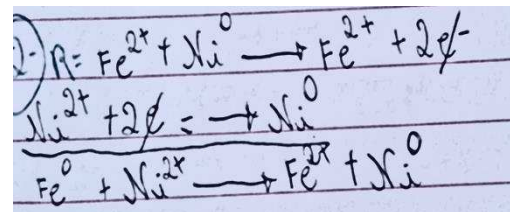 2-) R= Fe²⁺ + Ni⁰ → Fe²⁺ + 2e⁻
Ni²⁺ + 2e⁻ → Ni⁰
Fe⁰ + Ni²⁺ → Fe²⁺ + Ni⁰